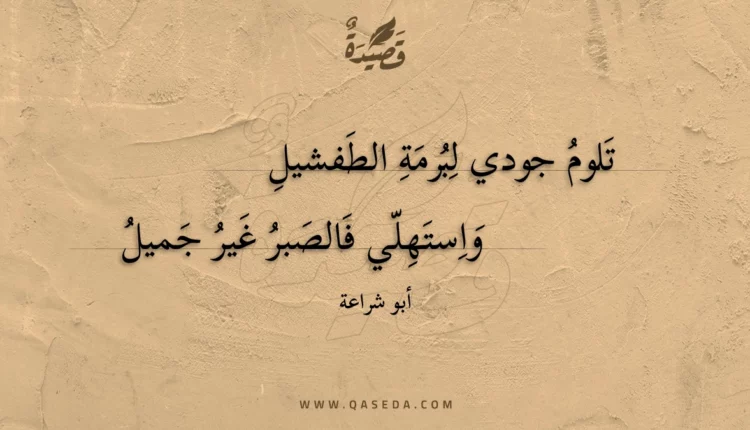 قَصِيْدَةٌ
تَلومُ جودي لِبُرمَةِ الطَفشيلِ
وَاِستَهِلّي فَالصَبرُ غَيرُ جَميلُ
أبو شراعة
WWW.QASEDA.COM